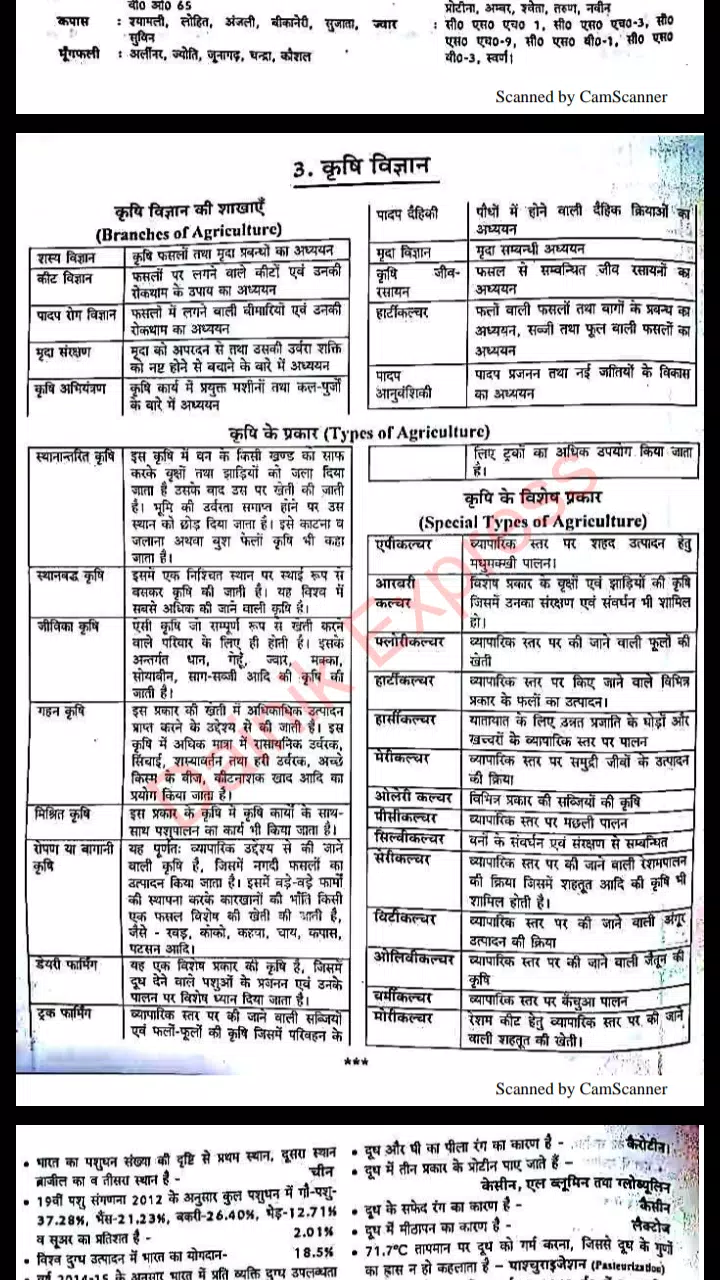 वी० ओ० 65
कपास : श्यामली, लोहित, अंजली, बीकानेरी, सुजाता,
सुविन
मूँगफली : अलीनर, ज्योति, जूनागढ़, चन्द्रा, कौशल
प्रोटीना, अम्बर, श्वेता, तरुण, नवीन
ज्वार : सी० एस० एच० 1, सी० एस० एच०-3, सी०
एस० एच०-9, सी० एस० वी०-1, सी० एस०
वी०-3, स्वर्ण।
Scanned by CamScanner
3. कृषि विज्ञान
कृषि विज्ञान की शाखाएँ
(Branches of Agriculture)
शस्य विज्ञान कृषि फसलों तथा मृदा प्रबन्धों का अध्ययन
कीट विज्ञान फसलों पर लगने वाले कीटों एवं उनकी
रोकथाम के उपाय का अध्ययन
पादप रोग विज्ञान फसलों में लगने वाली बीमारियों एवं उनकी
रोकथाम का अध्ययन
मृदा संरक्षण मृदा को अपरदन से तथा उसकी उर्वरा शक्ति
को नष्ट होने से बचाने के बारे में अध्ययन
कृषि अभियंत्रण कृषि कार्य में प्रयुक्त मशीनों तथा कल-पुर्जो
के बारे में अध्ययन
पादप दैहिकी पौधों में होने वाली दैहिक क्रियाओं का
अध्ययन
मृदा विज्ञान मृदा सम्बन्धी अध्ययन
कृषि जीव- फसल से सम्बन्धित जीव रसायनों का
रसायन अध्ययन
हार्टीकल्चर फलों वाली फसलों तथा बागों के प्रबन्ध का
अध्ययन, सब्जी तथा फूल वाली फसलों का
अध्ययन
पादप पादप प्रजनन तथा नई जातियों के विकास
आनुवंशिकी का अध्ययन
कृषि के प्रकार (Types of Agriculture)
स्थानान्तरित कृषि इस कृषि में वन के किसी खण्ड का साफ
करके वृक्षों तथा झाड़ियों को जला दिया
जाता है उसके बाद उस पर खेती की जाती
है। भूमि की उर्वरता समाप्त होने पर उस
स्थान को छोड़ दिया जाता है। इसे काटना व
जलाना अथवा बुश फेलों कृषि भी कहा
जाता है।
स्थानबद्ध कृषि इसमें एक निश्चित स्थान पर स्थाई रूप से
बसकर कृषि की जाती है। यह विश्व में
सबसे अधिक की जाने वाली कृषि है।
जीविका कृषि ऐसी कृषि जो सम्पूर्ण रूप से खेती करने
वाले परिवार के लिए ही होती है। इसके
अन्तर्गत धान, गेहूँ, ज्वार, मक्का,
सोयाबीन, साग-सब्जी आदि की कृषि की
जाती है।
गहन कृषि इस प्रकार की खेती में अधिकाधिक उत्पादन
प्राप्त करने के उद्देश्य से की जाती है। इस
कृषि में अधिक मात्रा में रासायनिक उर्वरक,
सिंचाई, शस्यावर्तन तथा हरी उर्वरक, अच्छे
किस्म के बीज, कीटनाशक खाद आदि का
प्रयोग किया जाता है।
मिश्रित कृषि इस प्रकार के कृषि में कृषि कार्यो के साथ-
साथ पशुपालन का कार्य भी किया जाता है।
रोपण या बागानी यह पूर्णतः व्यापारिक उद्देश्य से की जाने
कृषि वाली कृषि है, जिसमें नगदी फसलों का
उत्पादन किया जाता है। इसमें बड़े-बड़े फार्मो
की स्थापना करके कारखानों की भाँति किसी
एक फसल विशेष की खेती की जाती है,
जैसे - रबड़, कोको, कहवा, चाय, कपास,
पटसन आदि।
डेयरी फार्मिंग यह एक विशेष प्रकार की कृषि है, जिसमें
दूध देने वाले पशुओं के प्रजनन एवं उनके
पालन पर विशेष ध्यान दिया जाता है।
ट्रक फार्मिंग व्यापारिक स्तर पर की जाने वाली सब्जियों
एवं फलों-फूलों की कृषि जिसमें परिवहन के
लिए ट्रकों का अधिक उपयोग किया जाता
है।
कृषि के विशेष प्रकार
(Special Types of Agriculture)
एपीकल्चर व्यापारिक स्तर पर शहद उत्पादन हेतु
मधुमक्खी पालन।
आरबरी विशेष प्रकार के वृक्षों एवं झाड़ियों की कृषि
कल्चर जिसमें उनका संरक्षण एवं संवर्धन भी शामिल
हो।
फ्लोरीकल्चर व्यापारिक स्तर पर की जाने वाली फूलों की
खेती
हार्टीकल्चर व्यापारिक स्तर पर किए जाने वाले विभिन्न
प्रकार के फलों का उत्पादन।
हार्सीकल्चर यातायात के लिए उन्नत प्रजाति के घोड़ों और
खच्चरों के व्यापारिक स्तर पर पालन
मेरीकल्चर व्यापारिक स्तर पर समुद्री जीवों के उत्पादन
की क्रिया
ओलेरी कल्चर विभिन्न प्रकार की सब्जियों की कृषि
पीसीकल्चर व्यापारिक स्तर पर मछली पालन
सिल्वीकल्चर वनों के संवर्धन एवं संरक्षण से सम्बन्धित
सेरीकल्चर व्यापारिक स्तर पर की जाने वाली रेशमपालन
की क्रिया जिसमें शहतूत आदि की कृषि भी
शामिल होती है।
विटीकल्चर व्यापारिक स्तर पर की जाने वाली अंगूर
उत्पादन की क्रिया
ओलिवीकल्चर व्यापारिक स्तर पर की जाने वाली जैतून की
कृषि
वर्मीकल्चर व्यापारिक स्तर पर केंचुआ पालन
मोरीकल्चर रेशम कीट हेतु व्यापारिक स्तर पर की जाने
वाली शहतूत की खेती।
***
Dainik Express
Scanned by CamScanner
• भारत का पशुधन संख्या की दृष्टि से प्रथम स्थान, दूसरा स्थान
ब्राजील का व तीसरा स्थान है - चीन
• 19वीं पशु संगणना 2012 के अनुसार कुल पशुधन में गौ-पशु-
37.28%, भैंस-21.23%, बकरी-26.40%, भेड़-12.71%
व सूअर का प्रतिशत है - 2.01%
• विश्व दुग्ध उत्पादन में भारत का योगदान- 18.5%
• वर्ष 2014-15 के अनुसार भारत में प्रति व्यक्ति दुग्ध उपलब्धता
• दूध और घी का पीला रंग का कारण है - कैरोटीन।
• दूध में तीन प्रकार के प्रोटीन पाए जाते हैं -
केसीन, एल ब्लूमिन तथा ग्लोब्यूलिन
• दूध के सफेद रंग का कारण है - कैसीन
• दूध में मीठापन का कारण है - लैक्टोज
• 71.7°C तापमान पर दूध को गर्म करना, जिससे दूध के गुणों
का ह्रास न हो कहलाता है - पाश्चुराइजेशन (Pasteurization)